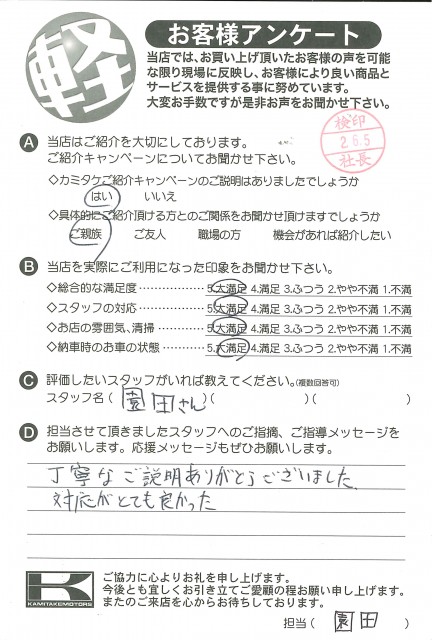 軽
お客様アンケート
当店では、お買い上げ頂いたお客様の声を可能
な限り現場に反映し、お客様により良い商品と
サービスを提供する事に努めています。
大変お手数ですが是非お声をお聞かせ下さい。
検印
26.5
社長
A 当店はご紹介を大切にしております。
ご紹介キャンペーンについてお聞かせ下さい。
◇カミタケご紹介キャンペーンのご説明はありましたでしょうか
はい いいえ
◇具体的にご紹介頂ける方とのご関係をお聞かせ頂けますでしょうか
ご親族 ご友人 職場の方 機会があれば紹介したい
B 当店を実際にご利用になった印象をお聞かせ下さい。
◇総合的な満足度 5.大満足 4.満足 3.ふつう 2.やや不満 1.不満
◇スタッフの対応 5.大満足 4.満足 3.ふつう 2.やや不満 1.不満
◇お店の雰囲気、清掃 5.大満足 4.満足 3.ふつう 2.やや不満 1.不満
◇納車時のお車の状態 5.大満足 4.満足 3.ふつう 2.やや不満 1.不満
C 評価したいスタッフがいれば教えてください。(複数回答可)
スタッフ名( 園田さん )( )( )
D 担当させて頂きましたスタッフへのご指摘、ご指導メッセージを
お願いします。応援メッセージもぜひお願いします。
丁寧なご説明ありがとうございました。
対応がとても良かった
K
KAMITAKEMOTORS
ご協力に心よりお礼を申し上げます。
今後とも宜しくお引き立てご愛顧の程お願い申し上げます。
またのご来店を心からお待ちしております。
担当( 園田 )